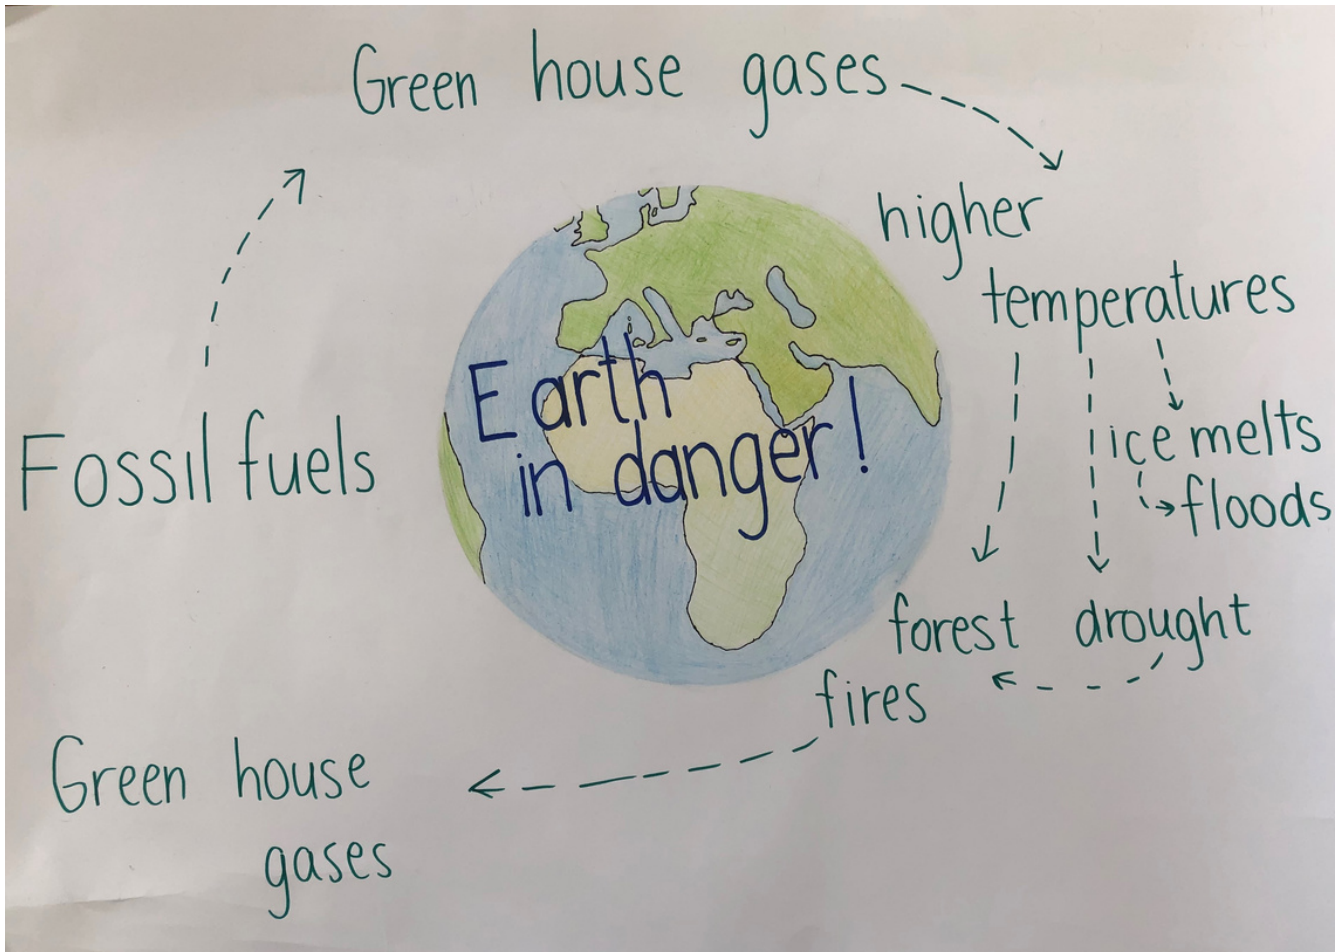 Green house gases
higher
temperatures
Fossil fuels
Earth
in danger!
ice melts
floods
forest drought
fires
Green house
gases